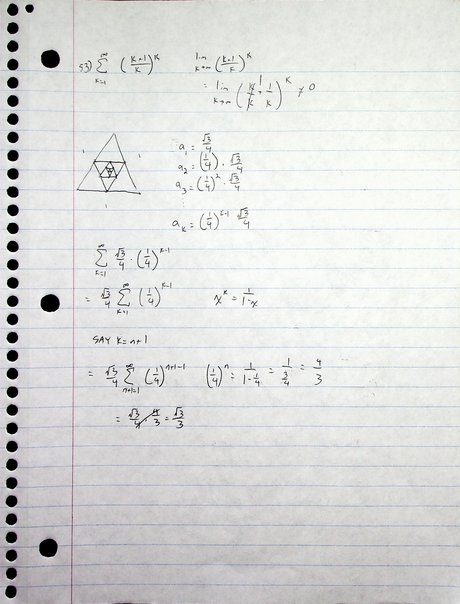 53) ∞ Σ k=1 (k+1/k)^k lim k→∞ (k+1/k)^k
= lim k→∞ (k/k + 1/k)^k ≠ 0
1 1 1
a₁ = √3/4
a₂ = (1/4) · √3/4
a₃ = (1/4)² · √3/4
⋮
aₖ = (1/4)^(k-1) √3/4
∞ Σ k=1 √3/4 · (1/4)^(k-1)
= √3/4 ∞ Σ k=1 (1/4)^(k-1) x^k = 1/(1-x)
SAY k = n+1
= √3/4 ∞ Σ n+1=1 (1/4)^(n+1-1) (1/4)^n = 1/(1-1/4) = 1/(3/4) = 4/3
= √3/4 · 4/3 = √3/3